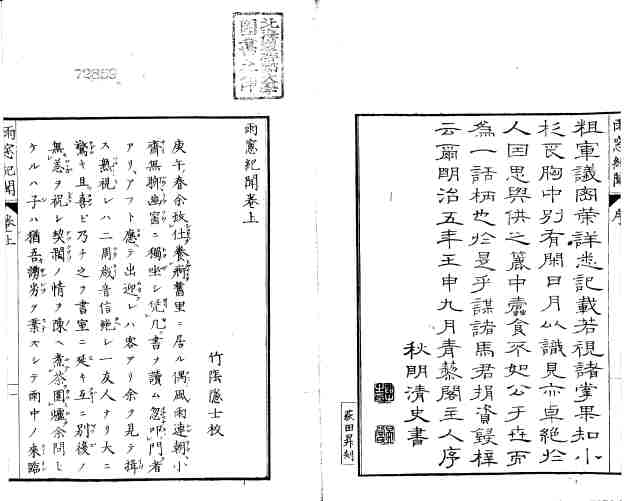 雨窓紀聞 序
粗軍議密策詳悉記載若視諸掌果知小
杉民胸中別有閑日月以識見亦卓絶於
人因思與供之簏中蠹食不如公于世而
為一話柄也於是乎謀諸馬君捐資鋟梓
云爾明治五年壬申九月青藜閣主人序
秋明清史書
萩田昇刻
雨窓紀聞巻上
竹陰隠士牧
庚午春余故仕養痾舊里ニ居ル偶風雨連朝小
齋無聊幽窓ニ獨坐シ凭几書ヲ讀ム忽叩門者
アリアフト應テ出迎レハ客アリ余ヲ見テ揖
ス熟視レハ二周歳音信絶シ一友人ナリ大ニ
驚キ且喜ビ乃チ之ヲ書室ニ延キ互ニ別後ノ
無恙ヲ祝シ契濶ノ情ヲ陳ヘ煮茶圍爐余問シ
ケルハ子ハ猶吾謭劣ヲ棄スシテ雨中ノ来臨
雨窓紀聞 巻上
72859
圖書之印